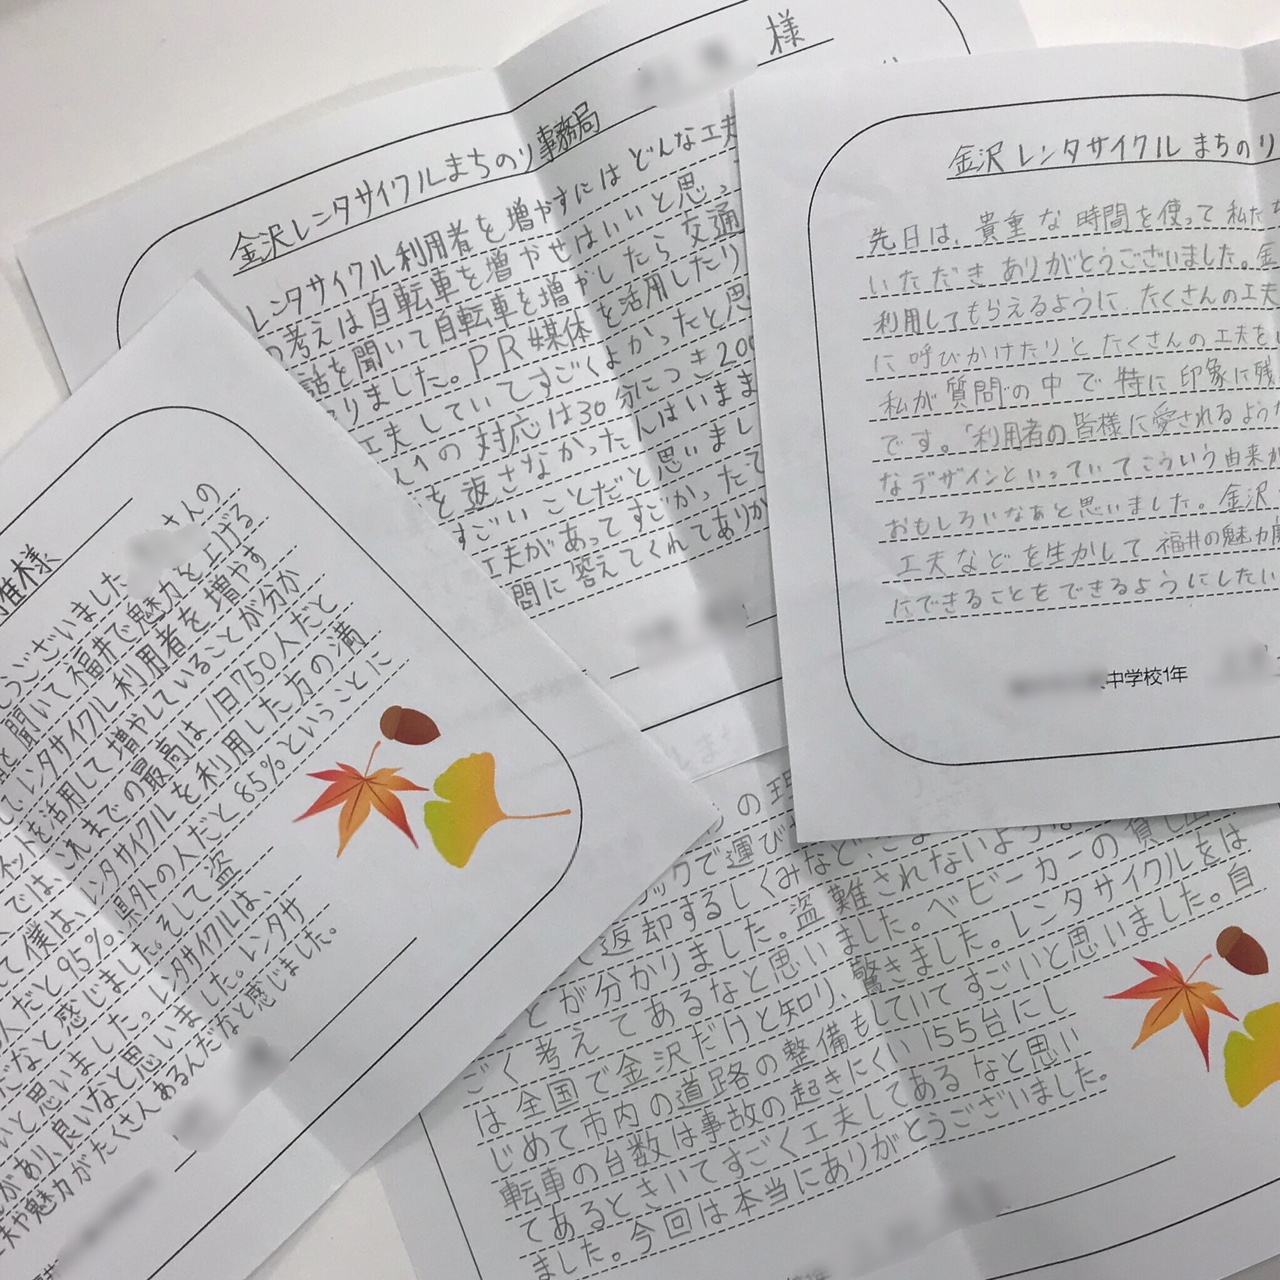 様
金沢レンタサイクルまちのり事務局
レンタサイクル利用者を増やすにはどんな工夫
の考えは自転車を増やせばいいと思っ
話を聞いて自転車を増やしたら交通
りました。PR媒体を活用したり
工夫していてすごくよかったと思
の対応は30分につき200
を返さなかった人はいま
すごいことだと思いまし
工夫があってすごかったで
問に答えてくれてありが
金沢レンタサイクル まちのり
先日は、貴重な時間を使って私た
いただきありがとうございました。金
利用してもらえるように、たくさんの工夫
に呼びかけたりとたくさんの工夫を
私が質問の中で特に印象に残
です。「利用者の皆様に愛されるよう
なデザインといっていてこういう由来が
おもしろいなぁと思いました。金沢
工夫などを生かして福井の魅力
にできることをできるようにしたい
中学校1年
様
うございました
さんの
聞いて福井で魅力を上げる
レンタサイクル利用者を増やす
ネットを活用して増やしていることが分か
では、これまでの最高は1日750人だと
て僕は、レンタサイクルを利用した方の満
人だと95%県外の人だと85%ということに
だなと感じました。そして盗
いと思いました。レンタサイクルは、
があり、良いなと思いました。レンタサ
夫や魅力がたくさんあるんだなと感じました。
の理
ックで運び
返却するしくみなど、
とが分かりました。盗難されないような
ごく考えてあるなと思いました。ベビーカーの貸し出
は全国で金沢だけと知り、驚きました。レンタサイクルをは
じめて市内の道路の整備もしていてすごいと思いました。自
転車の台数は事故の起きにくい155台にし
てあるときいてすごく工夫してあるなと思い
ました。今回は本当にありがとうございました。